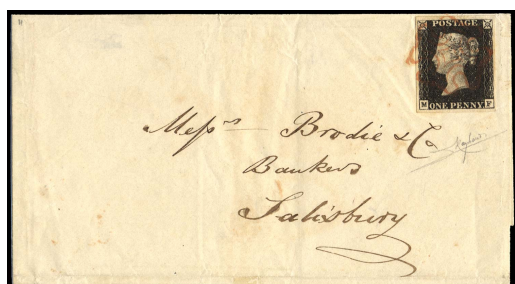 POSTAGE
M ONE PENNY F
Messrs Brodie & Co
Bankers
Salisbury